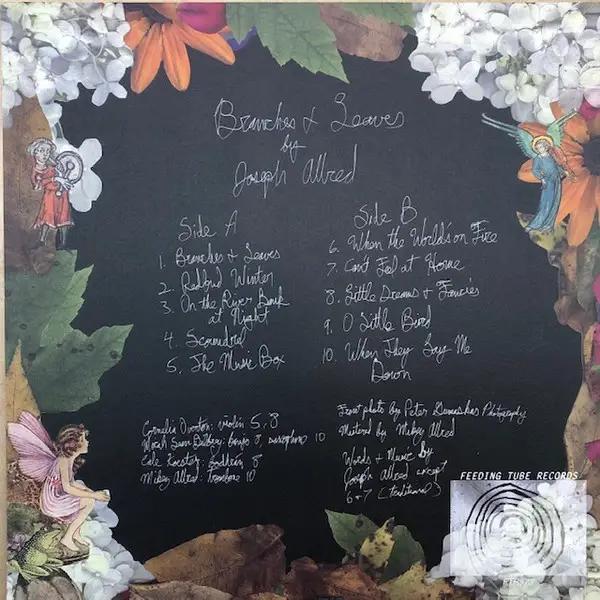 Branches & Leaves
by
Joseph Allred
Side A
1. Branches & Leaves
2. Redbud Winter
3. On the River Bank
at Night
4. Scoundrel
5. The Music Box
Side B
6. When the World's on Fire
7. Can't Feel at Home
8. Little Dreams & Fancies
9. O Little Bird
10. When They Lay Me
Down
Cornelia Overton: violin 5, 8
banjo 8, saxophone 10
Cole Koester: bodhran 8
Mikey Allred: trombone 10
Front photo by Peter Photography
Mastered by Mikey Allred
Words & Music by
Joseph Allred except
6 & 7 (traditional)
FEEDING TUBE RECORDS